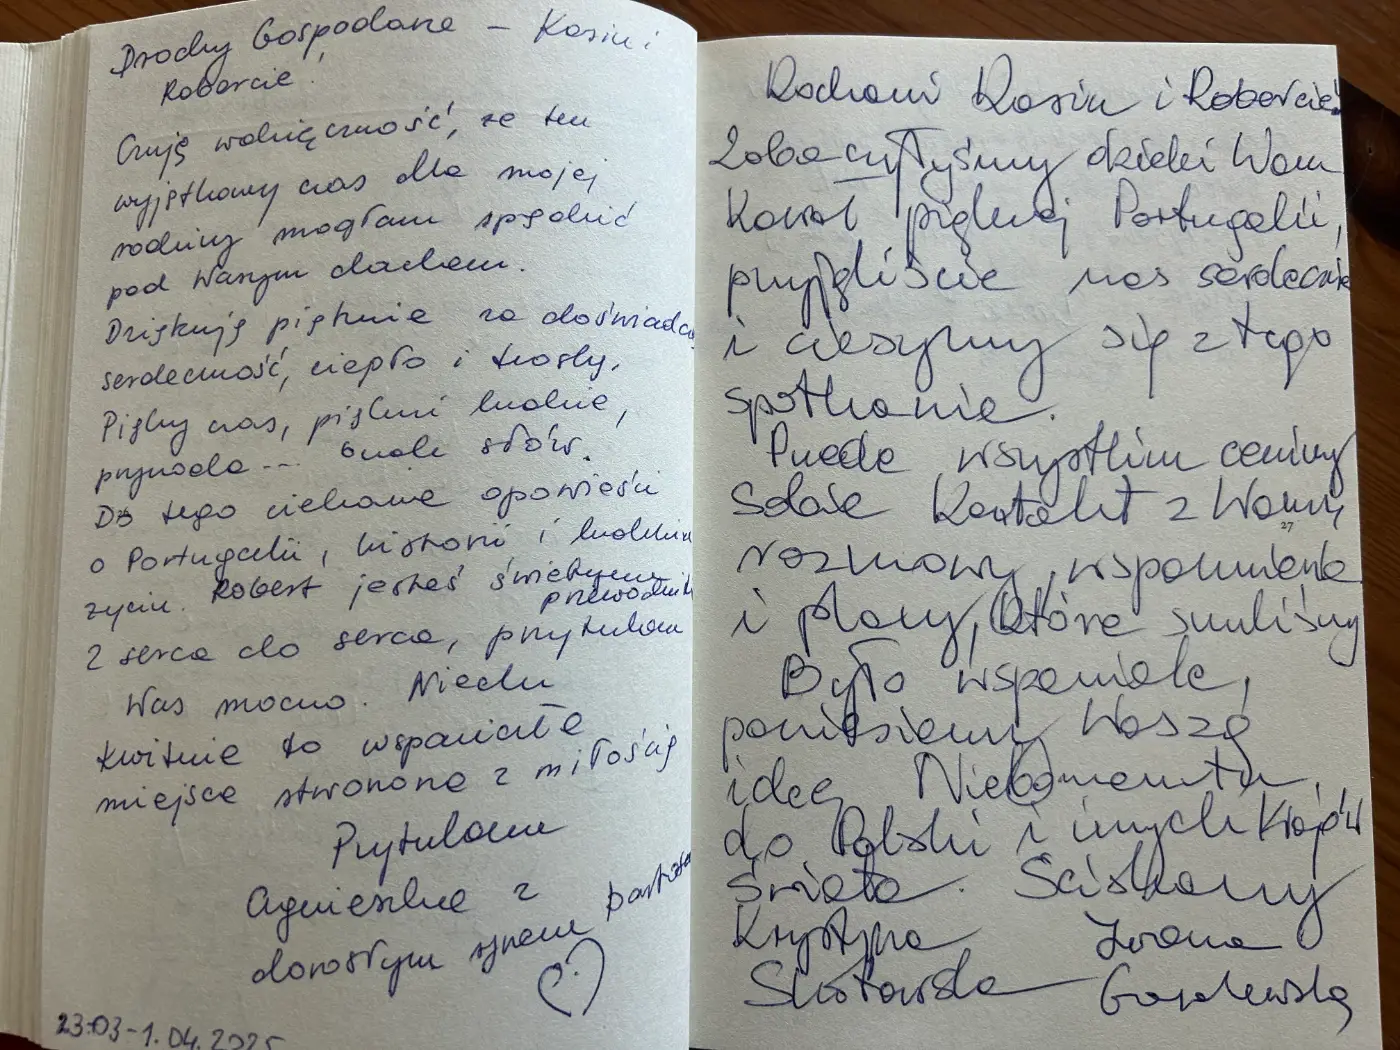 Drodzy Gospodarze – Kasiu i
Robercie!
Czuję wdzięczność, że ten
wyjątkowy czas dla mojej
rodziny mogłam spędzić
pod Waszym dachem.
Dziękuję pięknie za doświadcz
serdeczność, ciepło i troskę.
Piękny czas, piękni ludzie,
przyroda --- brak słów.
Do tego ciekawe opowieści
o Portugalii, historii i ludzkim
życiu. Robert jesteś świetnym
przewodnik
Z serca do serca, przytulam
Was mocno. Niech
kwitnie to wspaniałe
miejsce stworzone z miłością
Przytulam
Agnieszka z
dorosłym synem
23.03-1.04.2025
Kochani Kasiu i Robercie!
Zobaczyłyśmy dzięki Wam
Kawał pięknej Portugalii,
przyjęliście nas serdecznie
i cieszymy się z tego
spotkania.
Przede wszystkim cenimy
Sobie Kontakt z Wami,
27
rozmowy, wspomnienia
i plany, które snuliśmy
Było wspaniale,
poniesiemy Waszą
ideę
do Polski i innych Krajów
Świata. Ściskamy
Krystyna Iwona